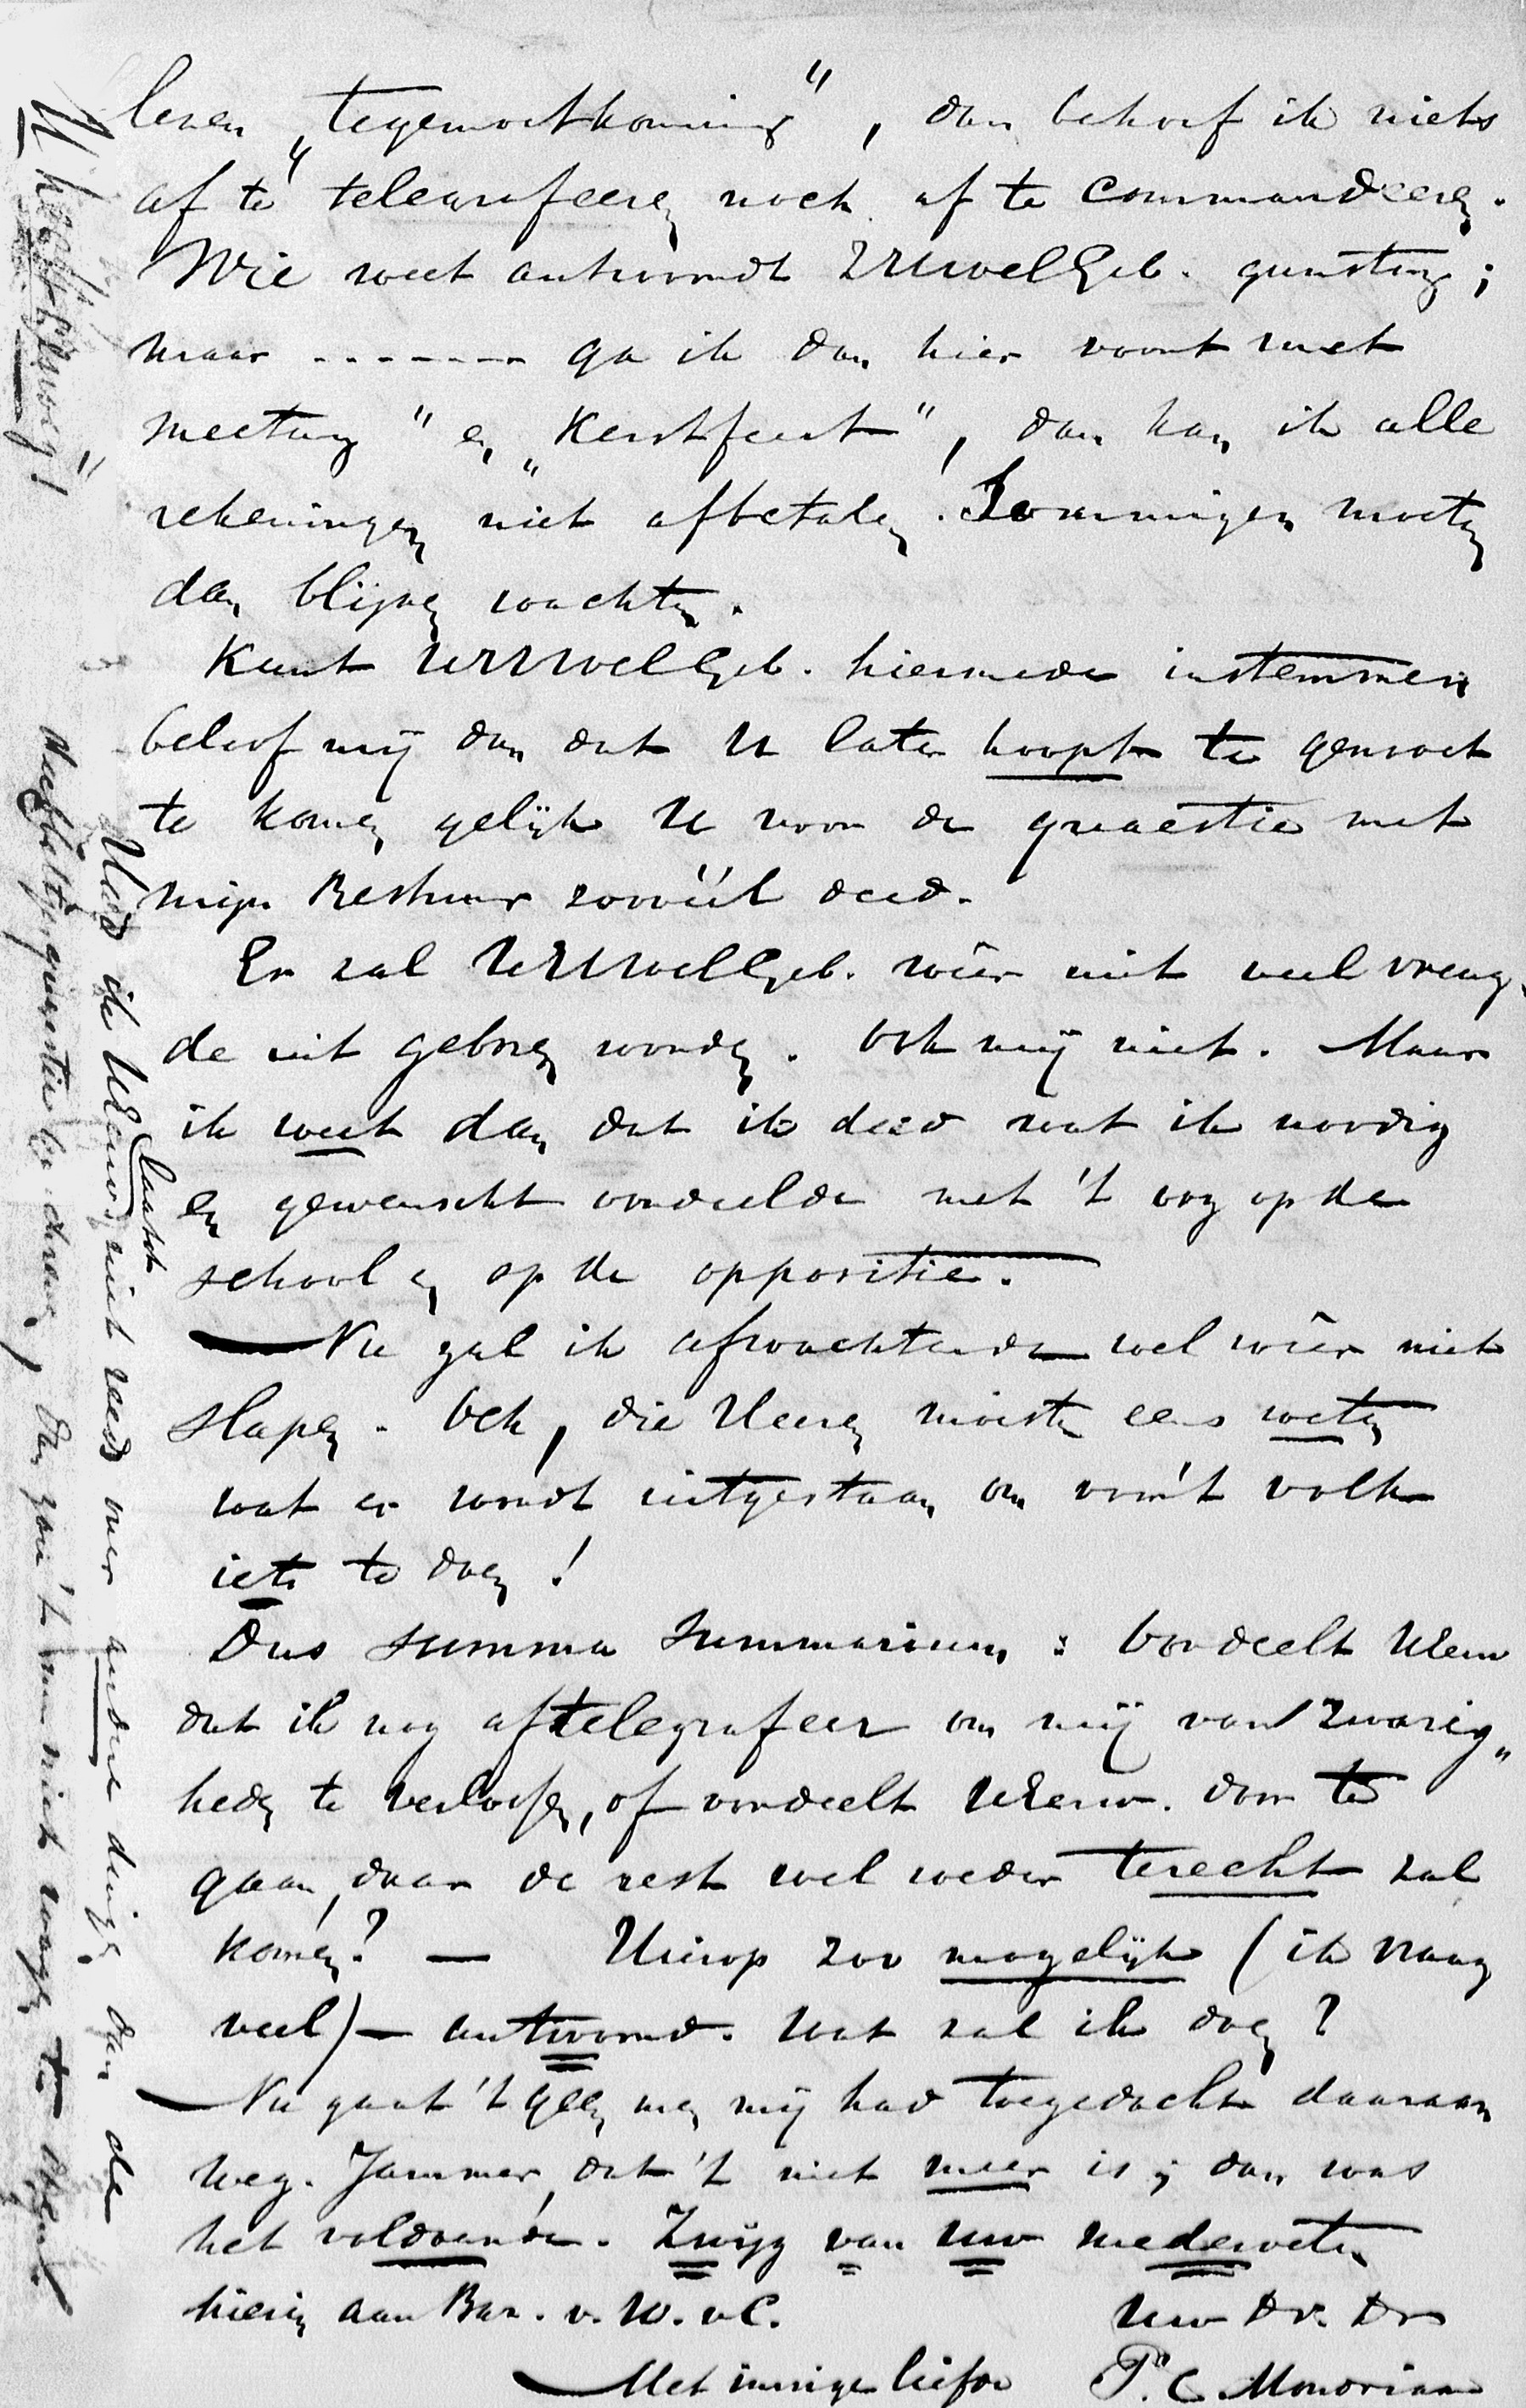 lenen „tegemoetkoming”, dan behoef ik niets
af te telegrafeeren noch af te commandeeren.
Wie weet antwoordt ZEUwelGeb. gunstig;
maar ------- ga ik dan hier voort met
meeting” en „Kerstfeest”, dan kan ik alle
rekeningen niet afbetalen. Sommigen moeten
dan blijven wachten.
Kunt UEUwelGeb. hiermede instemmen
beloof mij dan dat U later hoopt te gemoet
te komen gelijk U voor de quaestie met
mijn Bestuur zoovéél deed.
Er zal UEUwelGeb. wêer niet veel vreug-
de uit geboren worden. Ook mij niet. Maar
ik weet dan dat ik deed wat ik noodig
en gewenscht oordeelde met 't oog op de
school en op de oppositie.
— Nu zal ik afwachtende wel wêer niet
slapen. Och, die Heeren moesten eens weten
wat er wordt uitgestaan om voor't volk
iets te doen!
Dus summa summarium: Oordeelt UEew
dat ik nog aftelegrafeer om mij van zwarig-
heden te verlossen, of oordeelt UEew. door te
gaan, daar de rest wel weder terecht zal
komen? — Hierop zoo mogelijk (ik vraag
veel) — antwoord. Wat zal ik doen?
— Nu gaat 't geen men mij had toegedacht daaraan
weg. Jammer dat 't niet meer is; dan was
het voldoende. Zwijg van uw medeweten
hierin aan Bar. v. W. v C.
Uw Dv. Dr
— Met innige liefde P. C. Mondriaan
Had ik UEew. laatst niet reeds over andere dingen dan de
quaestie geschreven, dan zou 't nu niet wagen te doen!
U heeft Eenig!”